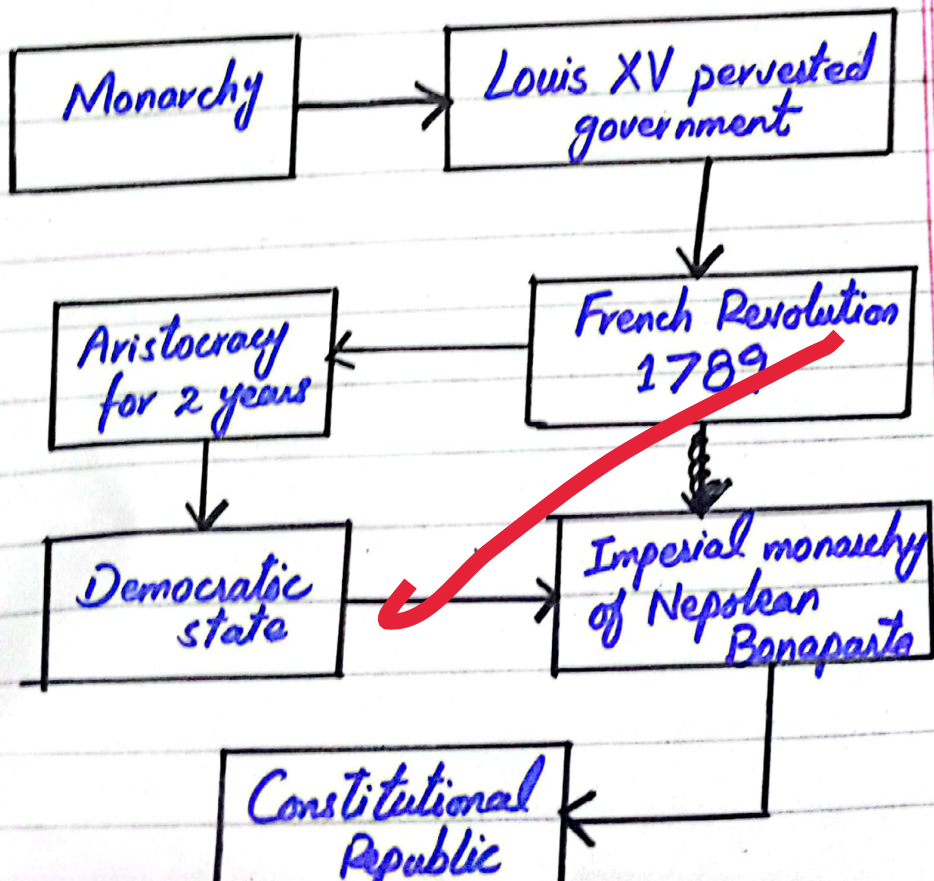 Monarchy
Louis XV perverted
government
French Revolution
1789
Aristocracy
for 2 years
Democratic
state
Imperial monarchy
of Nepolean
Bonaparte
Constitutional
Republic